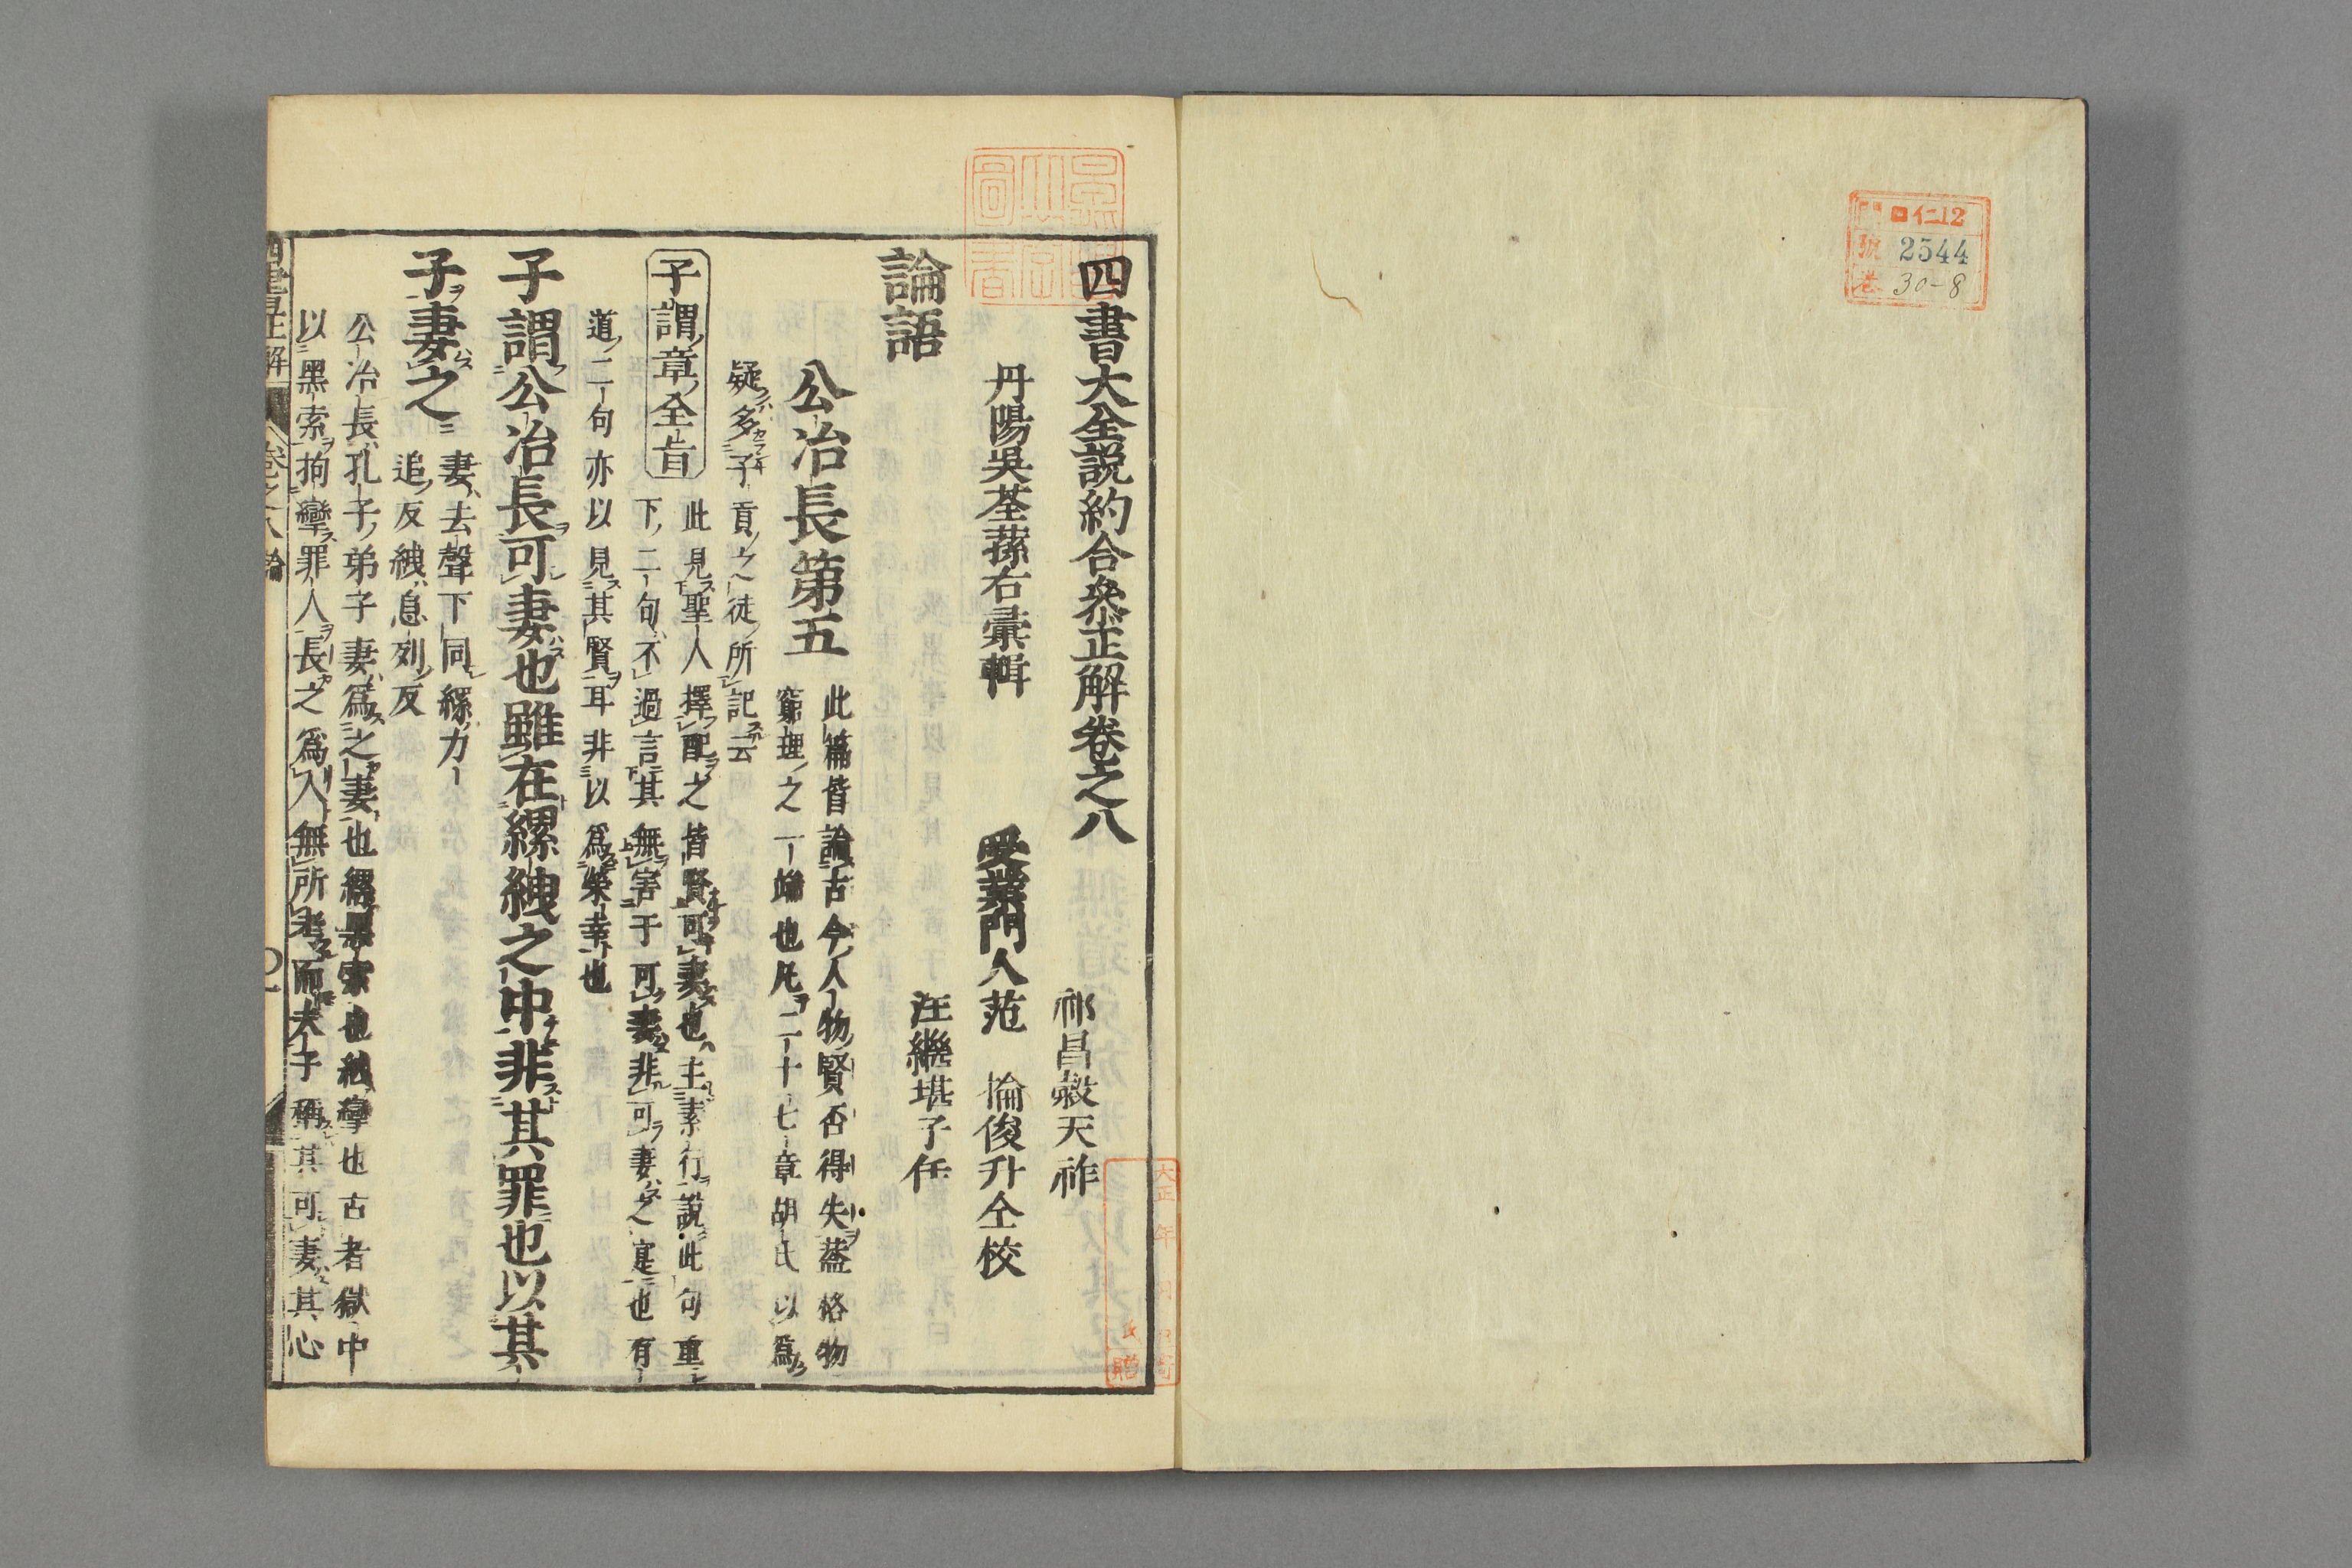 口仁12
號 2544
卷 30-8
四書大全説約合參正解卷之八
丹陽吳荃蓀右彙輯
祁昌穀天祚
受業門人范 掄俊升仝校
汪繼堪子任
論語
公冶長第五
此篇皆論古今人物賢否得失蓋格物
窮理之一端也凡二十七章胡氏以爲
疑多子貢之徒所記云
子謂章全旨
此見聖人擇配之皆賢可妻也主素行說此句重
下二句不過言其無害于可妻非可妻之寔也有
道二句亦以見其賢耳非以爲榮幸也
子謂公冶長可妻也雖在縲絏之中非其罪也以其
子妻之
妻去聲下同縲力
追反絏息列反
公冶長孔子弟子妻爲之妻也縲黑索也絏攣也古者獄中
以黑索拘攣罪人長之爲人無所考而夫子稱其可妻其心
四書正解 卷之八 論